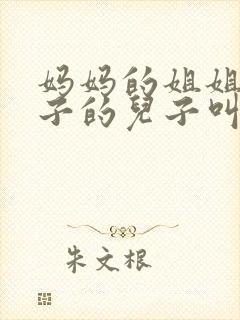 妈妈的姐姐
子的兒子叫
朱文根